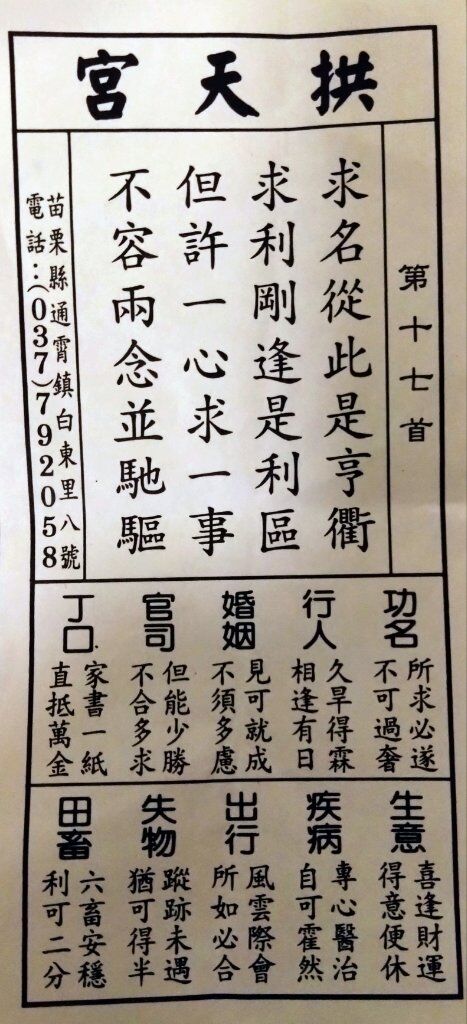 拱天宮
第十七首
求名從此是亨衢
求利剛逢是利區
但許一心求一事
不容兩念並馳驅
苗栗縣通霄鎮白東里八號
電話：(037)792058
功名
所求必遂
不可過奢
行人
久旱得霖
相逢有日
婚姻
見可就成
不須多慮
官司
但能少勝
不合多求
丁口
家書一紙
直抵萬金
生意
喜逢財運
得意便休
疾病
專心醫治
自可霍然
出行
風雲際會
所如必合
失物
蹤跡未遇
猶可得半
田畜
六畜安穩
利可二分